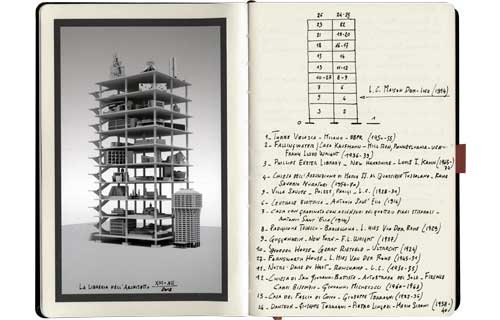 LA LIBRERIA DELL'ARCHITETTO
23 22
21 19-20
18 16-17
L.C. MAISON DOM-INO (1914)
0 1
1 - TORRE VELASCA - MILANO - BBPR (1950-55)
2 - FALLINGWATER / CASA KAUFMANN - MILL RUN, PENNSYLVANIA - USA -
FRANK LLOYD WRIGHT (1936-39)
3 - PHILLIPS EXETER LIBRARY - NEW HAMPSHIRE - LOUIS I. KAHN
4 - CHIESA DELL'ASSUNZIONE DI MARIA AL QUARTIERE TUSCOLANO - ROMA
SAVERIO MURATORI (1954-70)
5 - VILLA SAVOYE - POISSY, PARIGI - L.C. (1928-31)
6 - CENTRALE ELETTRICA - ANTONIO SANT'ELIA (1914)
7 - CASA CON GRADINATA CON ASCENSORI DAI QUATTRO PIANI STRADALI -
ANTONIO SANT'ELIA (1914)
8 - PADIGLIONE TEDESCO - BARCELLONA - L. MIES VAN DER ROHE (1929)
9 - GUGGENHEIM - NEW YORK - F.L. WRIGHT
10 - SCHRODER HOUSE - GERRIT RIETVELD - UTRECHT (1924)
FARNSWORTH HOUSE - L. MIES VAN DER ROHE (1945-51)
NOTRE-DAME DU HAUT - RONCHAMP - L.C. (1950-55)
12 - CHIESA DI SAN GIOVANNI BATTISTA - AUTOSTRADA DEL SOLE, FIRENZE
GIOVANNI MICHELUCCI (1960-1964)
13 - CASA DEL FASCIO DI COMO - GIUSEPPE TERRAGNI (1932-36)
14 - DANTEUM - GIUSEPPE TERRAGNI - PIETRO LINGERI - MARIO SIRONI